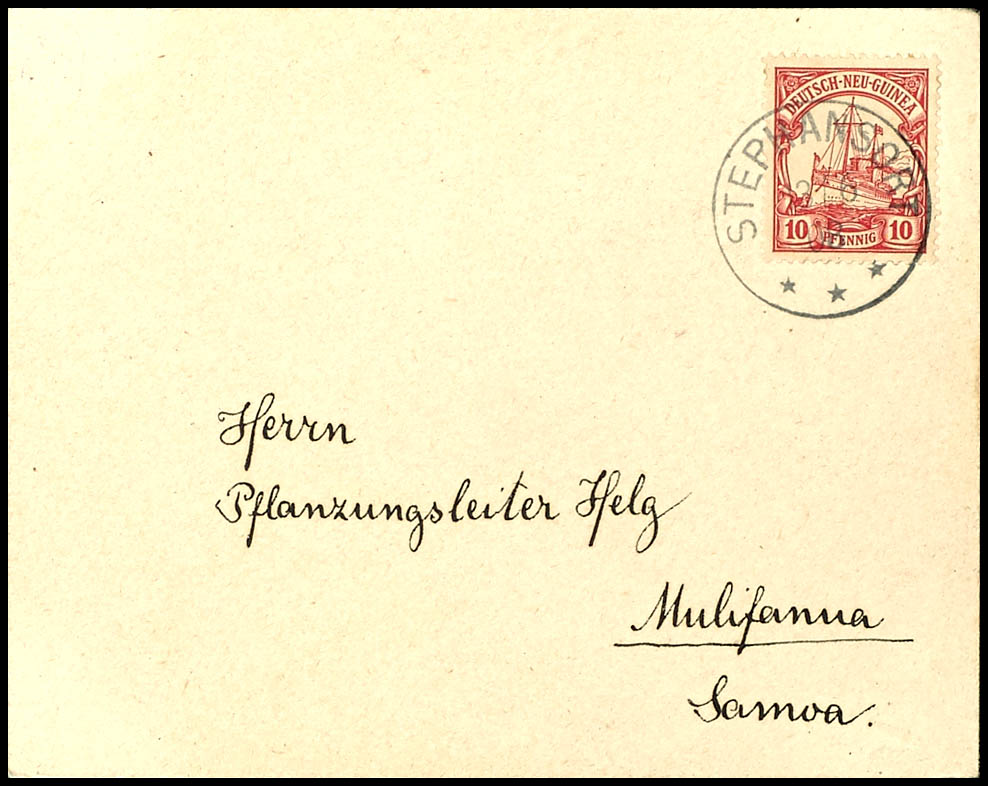 DEUTSCH-NEU-GUINEA
STEPHANSORT
10 PFENNIG 10
Herrn
Pflanzungsleiter Helg
Mulifanua
Samoa.